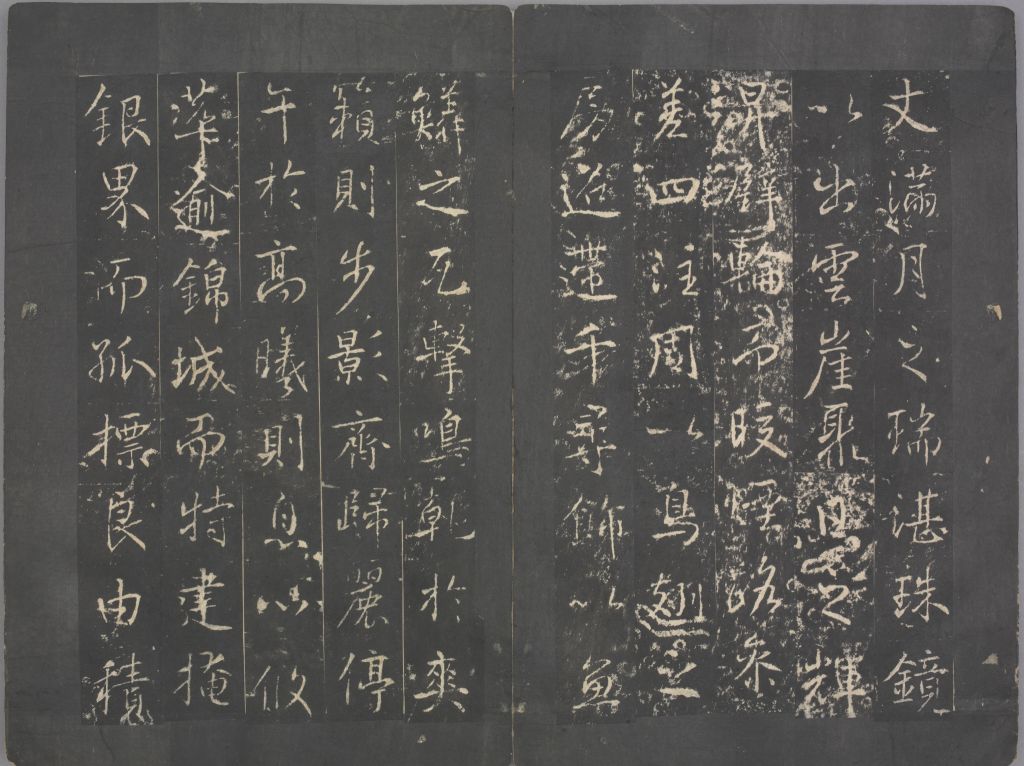 丈滿月之瑞湛珠鏡
以出雲崖聚日之輝
昇璧輪而曖煙路參
差四注周以鳥翅之
房迢遰千尋飾以魚
鱗之瓦擊鳴乾於爽
籟則步影齊歸麗停
午於高曦則息心攸
萃逾錦城而特建掩
銀界而孤標良由積